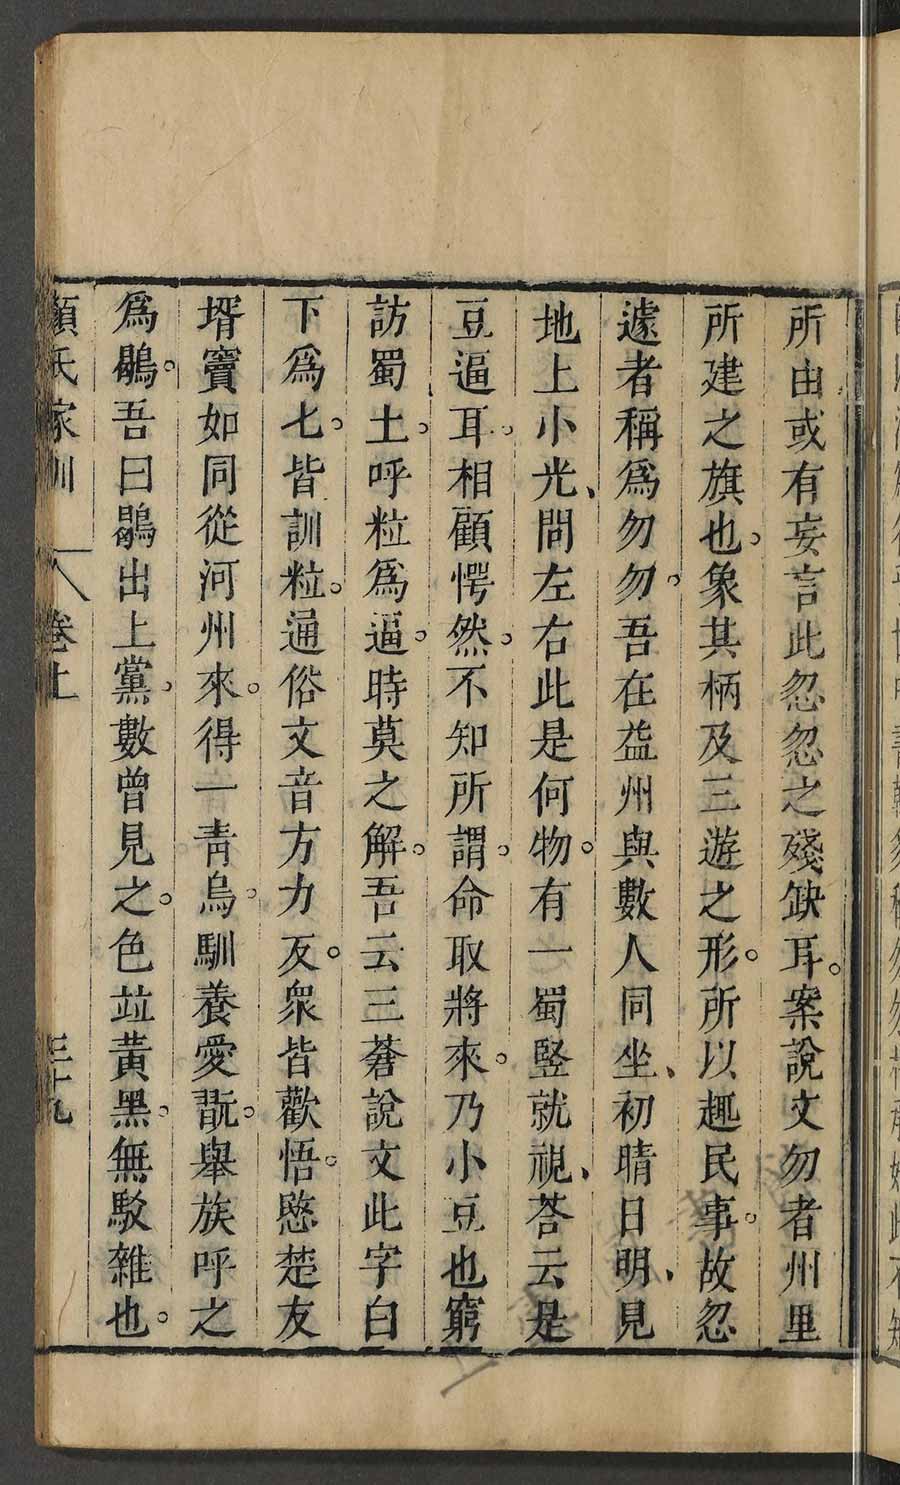 所由或有妄言此忽忽之殘缺耳。案說文勿者州里
所建之旗也。象其柄及三遊之形。所以趣民事。故忽
遽者稱爲勿勿。吾在益州與數人同坐、初晴日明、見
地上小光、問左右此是何物。有一蜀竪就視、荅云是
豆逼耳。相顧愕然。不知所謂。命取將來。乃小豆也窮
訪蜀土。呼粒爲逼。時莫之解。吾云三蒼說文此字白
下爲匕。皆訓粒。通俗文音方力反。衆皆歡悟。愍楚友
壻竇如同從河州來。得一青鳥。馴養愛翫。舉族呼之
爲鶡。吾曰鶡出上黨。數曾見之。色竝黃黑。無駁雜也。
顏氏家訓 卷上 三十九